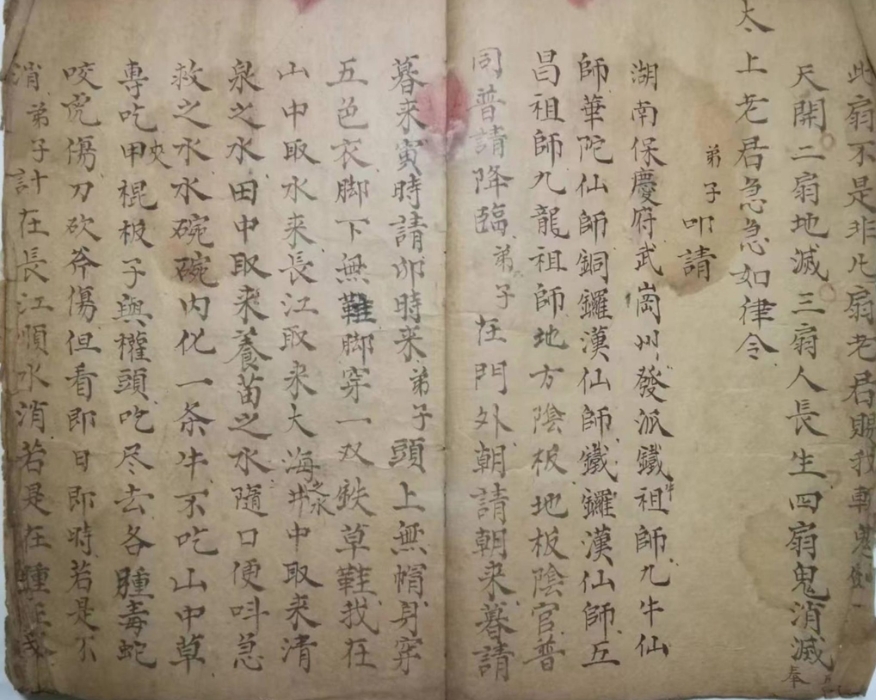 此扇不是非凡扇老君賜我斬鬼
天開二扇地滅三扇人長生四扇鬼消滅奉
太上老君急急如律令
弟子叩請
湖南保慶府武崗州發派鐵牛祖師九牛仙
師華陀仙師銅鑼漢仙師鐵鑼漢仙師五
昌祖師九龍祖師地方陰板地板陰官普
同普請降臨弟子在門外朝請朝来暮請
暮来寅時請卯時来弟子頭上無帽身穿
五色衣脚下無鞋脚穿一双鉄草鞋我在
山中取水来長江取来大海之水井中取来清
泉之水田中取来養苗之水隨口便呌急
救之水水碗碗内化一条牛不吃山中草
專吃甲棍板子與權頭吃尽去各腫毒蛇
咬虎傷刀砍斧傷但看即日即時若是不
消弟子計在長江順水消若是在腫